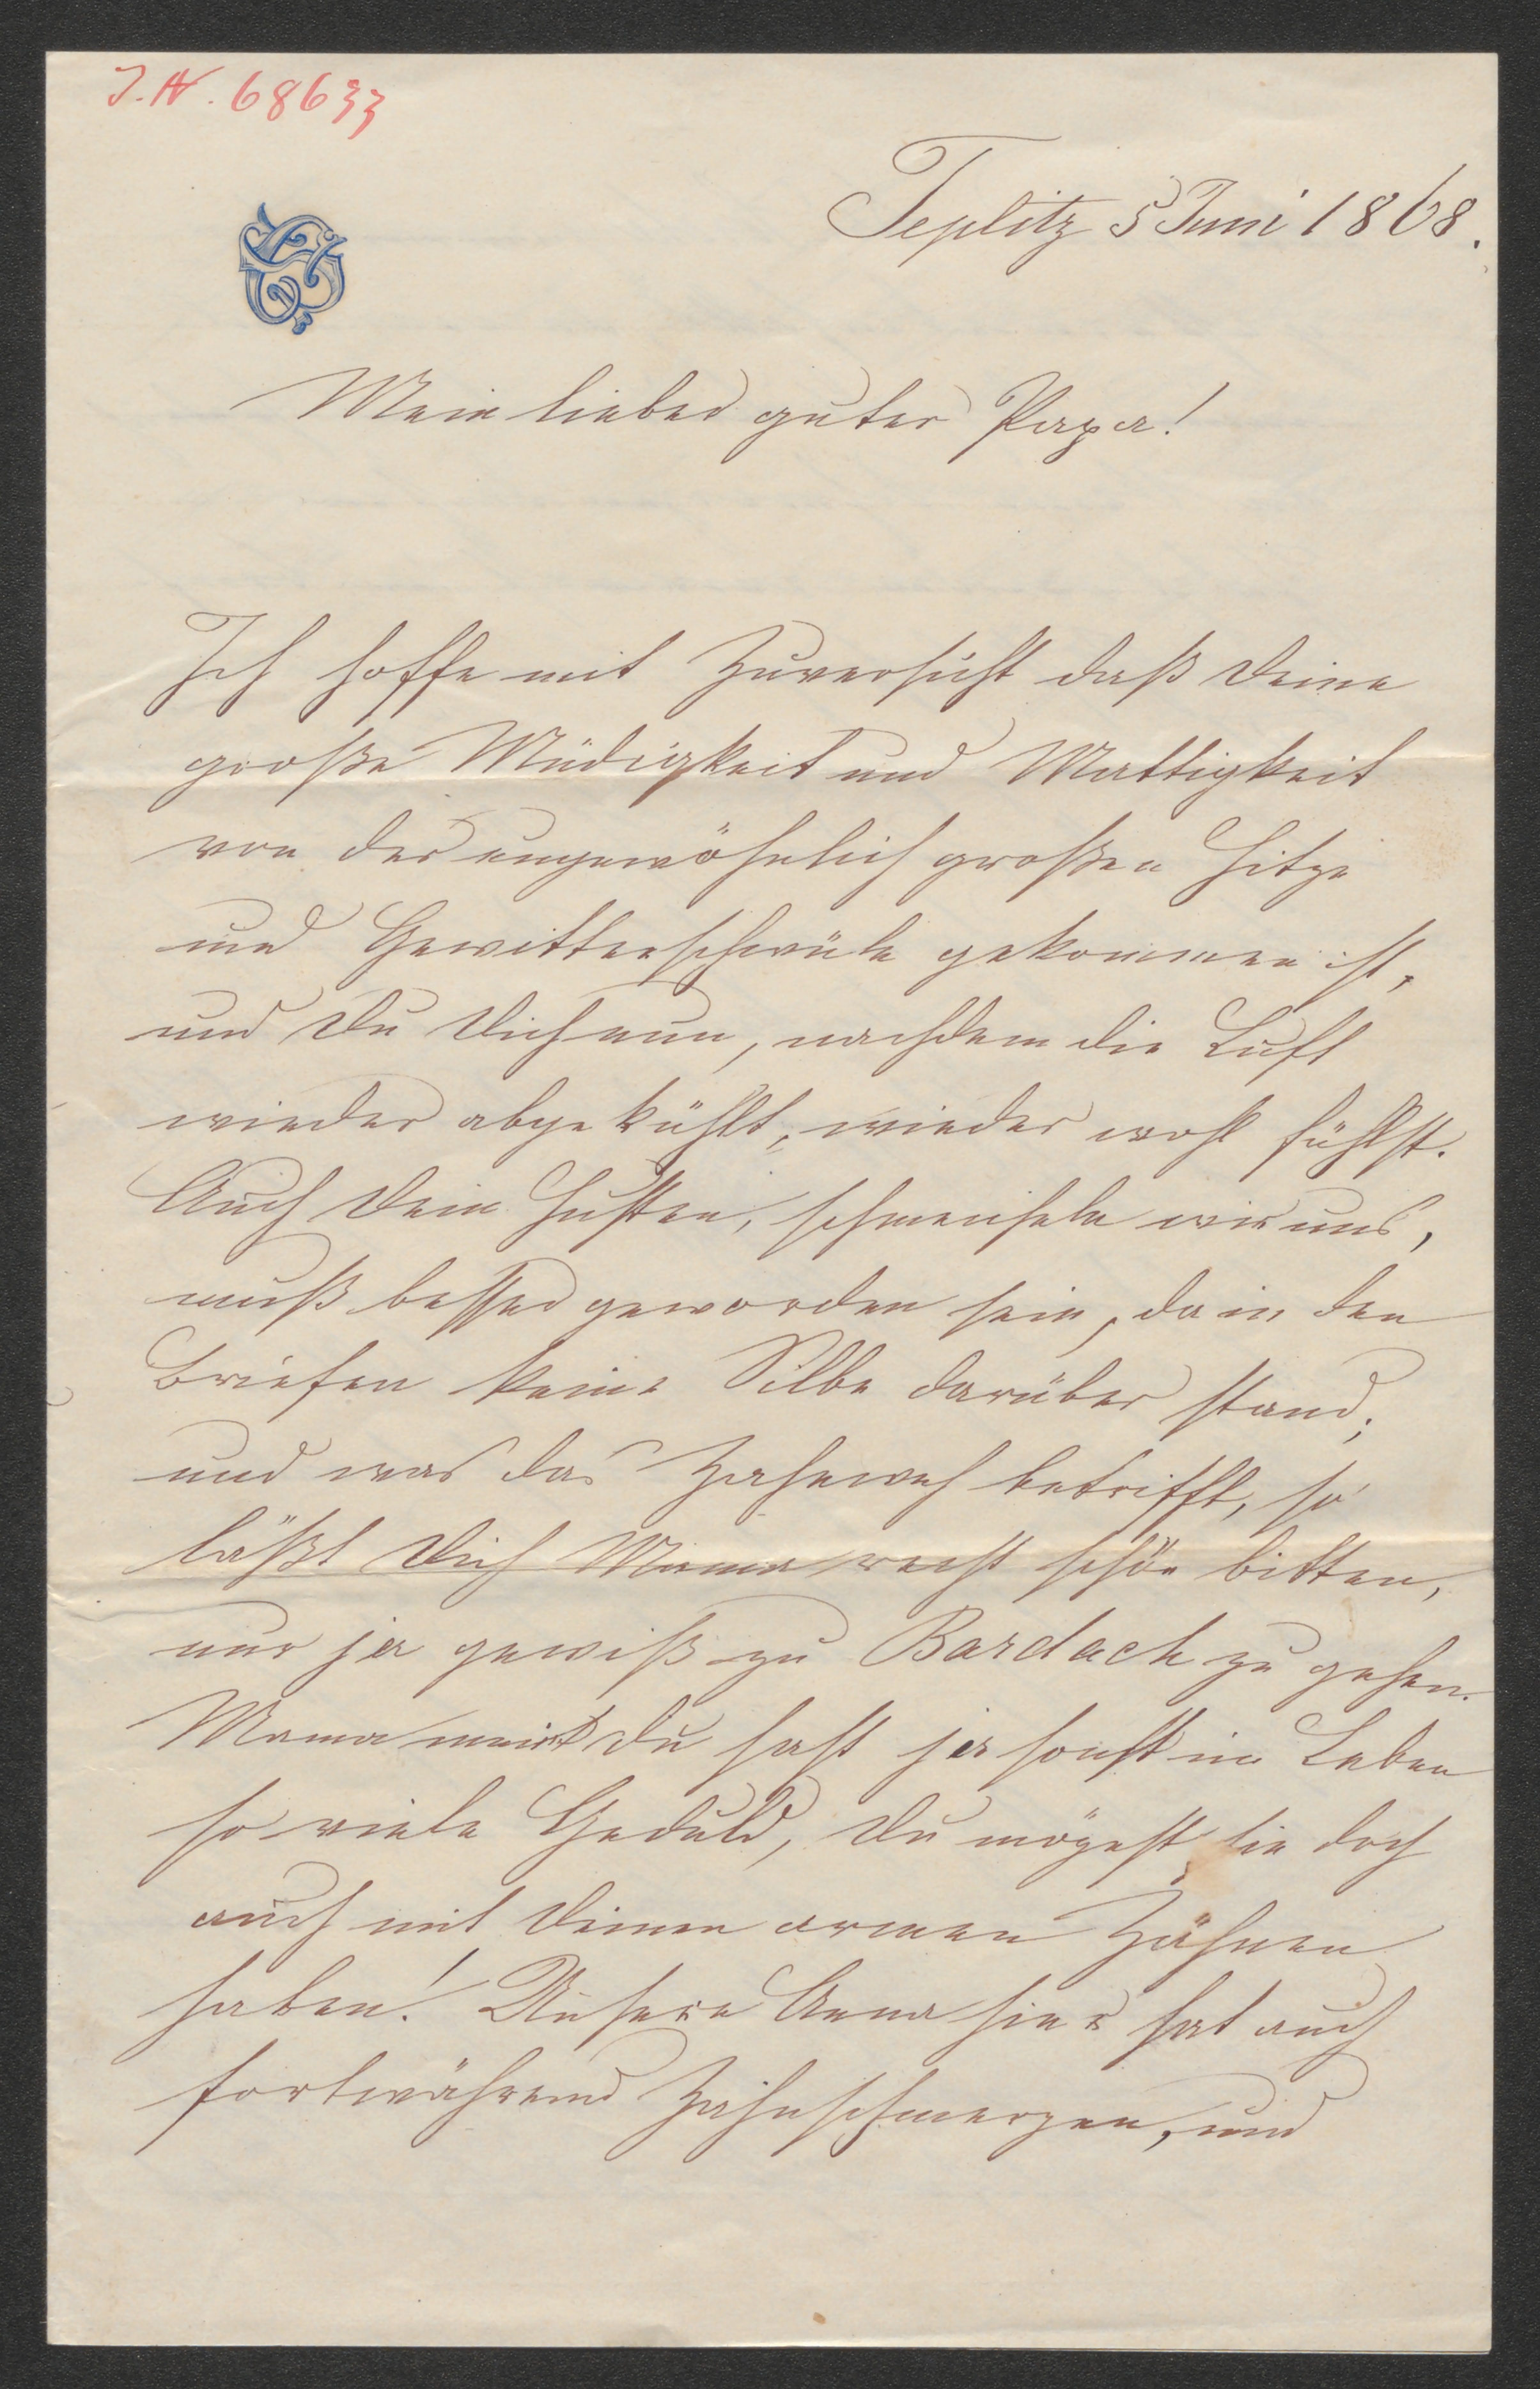 J.N. 68633
Teplitz 5 Juni 1868.
Mein lieber guter Papa!
Ich hoffe mit Zuversicht daß Deine
große Müdigkeit und Mattigkeit
von der ungewöhnlich großen Hitze
und Gewitterschwüle gekommen ist,
und Du Dich nun, nachdem die Luft
wieder abgekühlt, wieder wohl fühlst.
Auch Dein Husten, schmeicheln wir uns,
muß besser geworden sein, da in den
Briefen keine Silbe darüber stand;
und was das Zahnweh betrifft, so
läßt Dich Mama recht schön bitten,
nur ja gewiß zu Bardach zu gehen.
Mama meint Du hast ja sonst im Leben
so viele Geduld, Du mögest sie doch
auch mit Deinen armen Zähnen
haben! Unsere Anna hier hat auch
fortwährend Zahnschmerzen, und